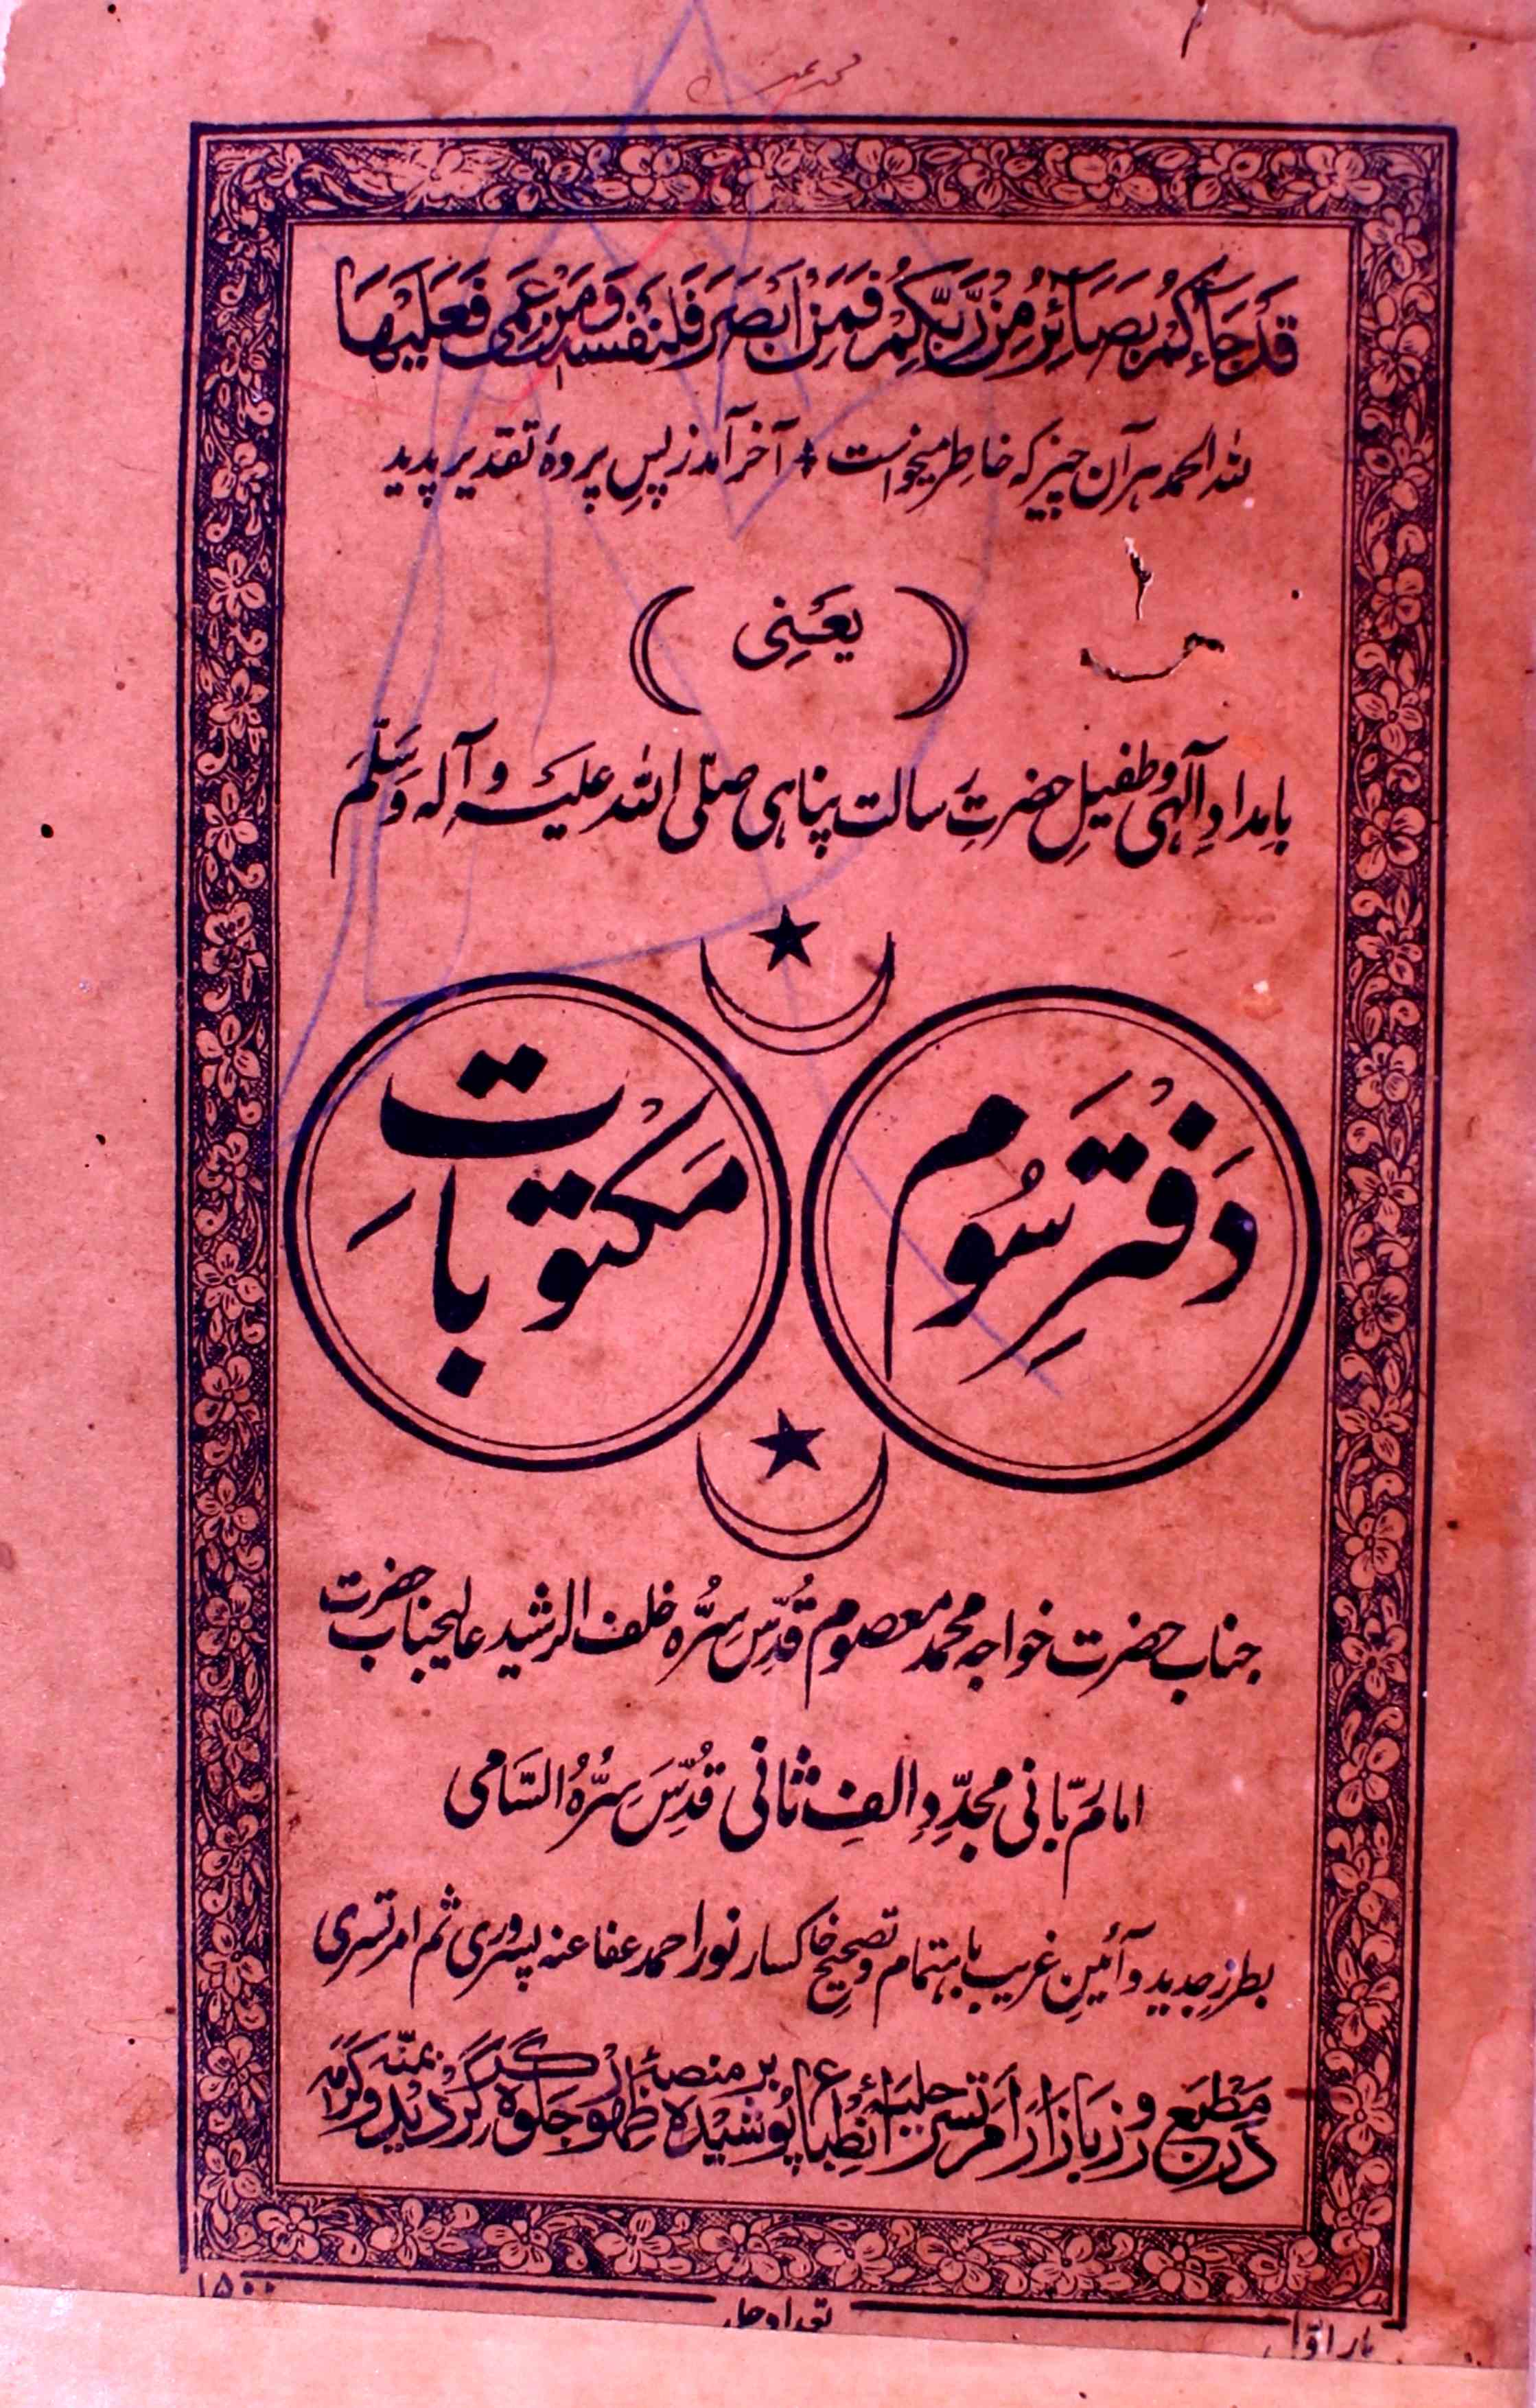 قَدْ جَآءَكُمْ بَصَآئِرُ مِنْ رَّبِّكُمْ فَمَنْ اَبْصَرَ فَلِنَفْسِهٖ وَمَنْ عَمِیَ فَعَلَیْهَا
للہ الحمد ہر آن چیز کہ خاطر میخواست + آخر آمد ز پسِ پردۂ تقدیر پدید
(یَعْنِی)
بامدادِ آلہی و طفیلِ حضرتِ رسالت پناہی صلّی اللہ علیہ وآلہ وَسَلَّمَ
دَفْترِ سُوم
مَکْتوباتِ
جناب حضرت خواجہ محمد معصوم قُدِّسَ سِرُّہ خلف الرشید عالیجناب حضرت
امامِ رَبّانی مجدّدِ الفِ ثانی قُدِّسَ سِرُّہُ السَّامی
بطرزِ جدید و آئینِ غریب باہتمام و تصحیحِ خاکسار نور احمد عفا عنہ پسروری ثم امرتسری
در مَطْبَع روزبازار اَمْرَتسر حلیۂ اِنْطِباع پوشیدہ بر منصۂ ظہور جلوہ گر گردید بمنّہ وکرمہ
بار اوّل
تعداد جلد
۱۵۰۰